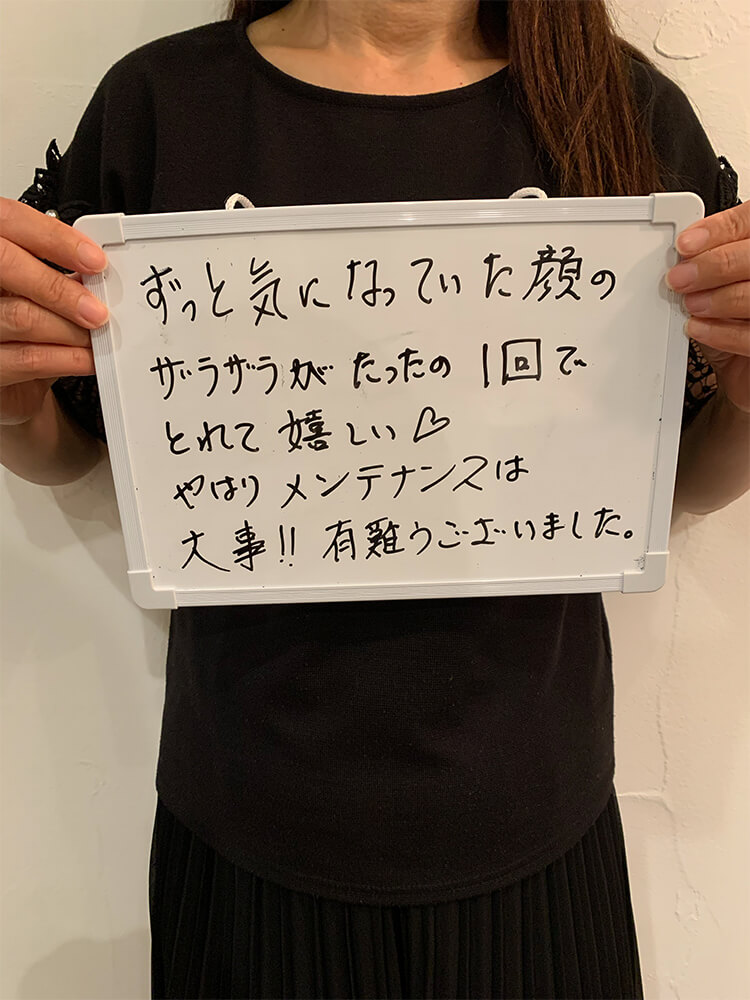 ずっと気になっていた顔の
ザラザラが たったの 1回で
とれて 嬉しい♡
やはり メンテナンスは
大事!! 有難うございました。